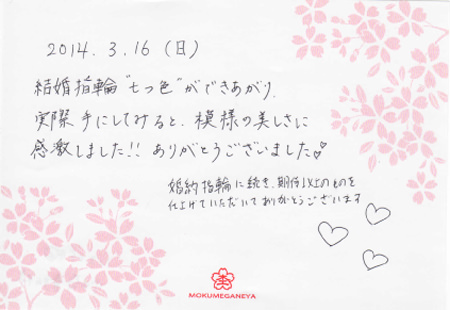 2014.3.16（日）
結婚指輪“七つ色”ができあがり、
実際手にしてみると、模様の美しさに
感激しました!! ありがとうございました♡
婚約指輪に続き、期待以上のものを
仕上げていただいてありがとうございます
MOKUMEGANEYA